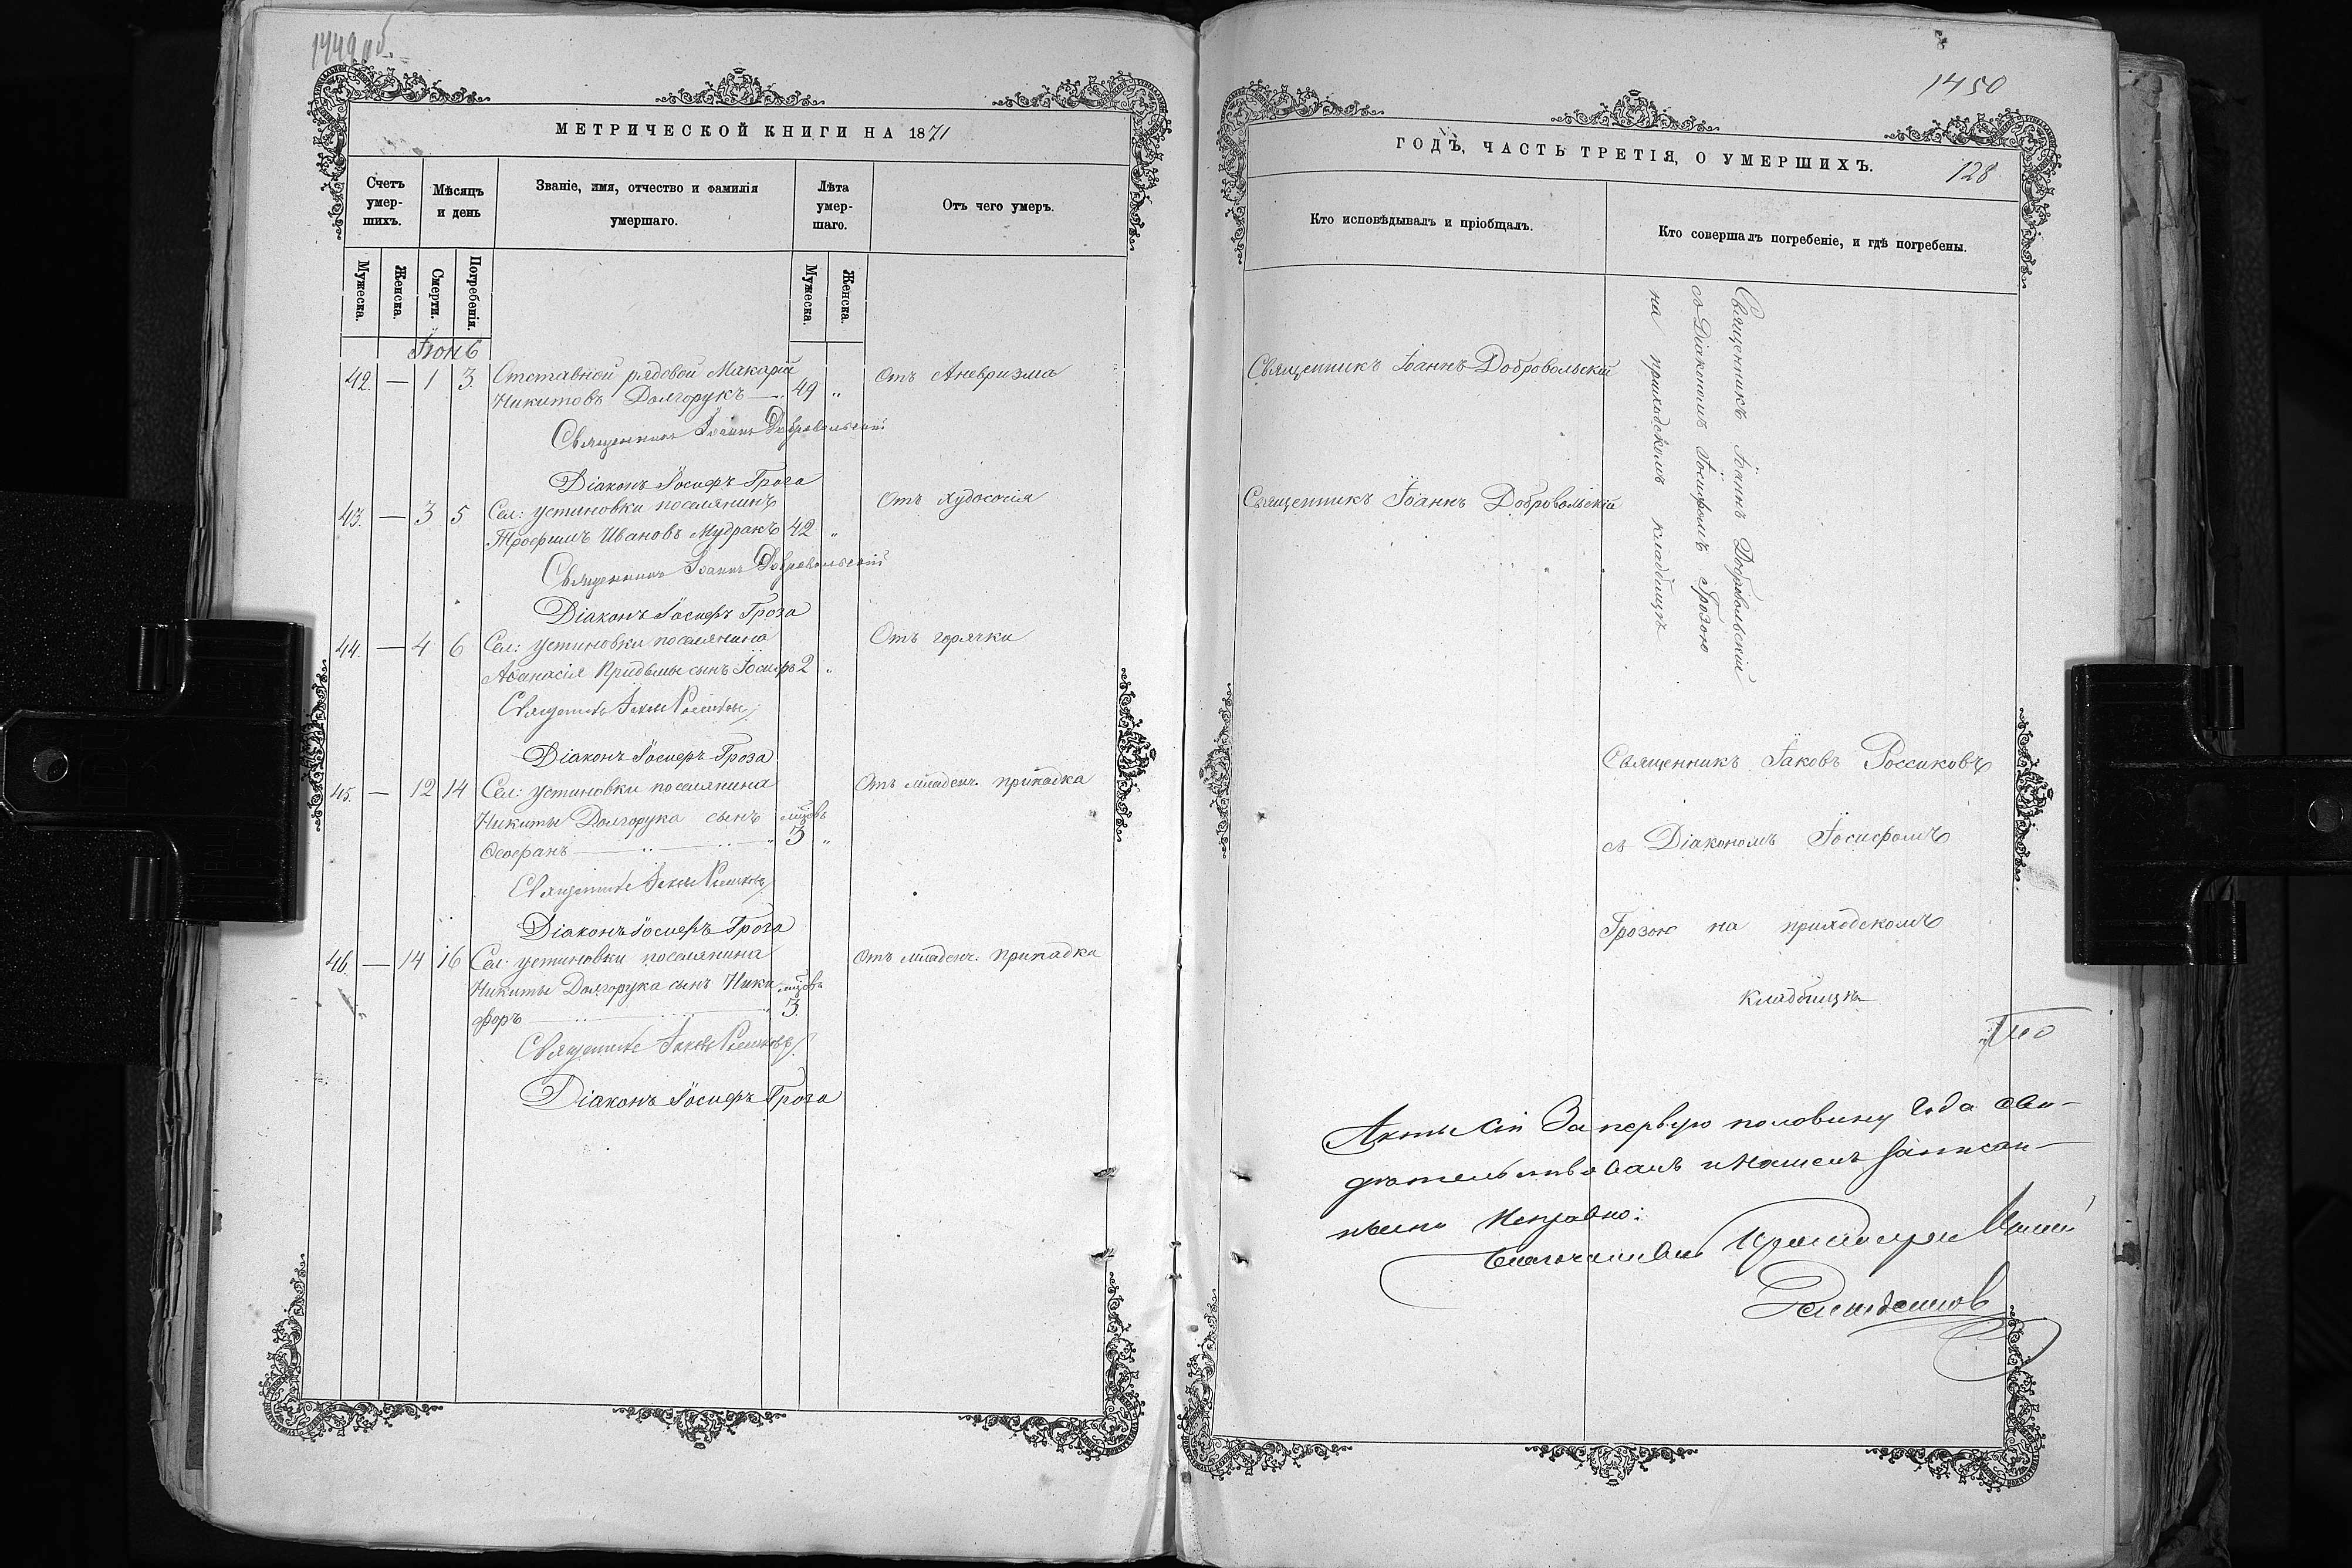 1449 об.
МЕТРИЧЕСКОЙ КНИГИ НА 1871
Счетъ умер-шихъ.
Мѣсяцъ и день
Званіе, имя, отчество и фамилія умершаго.
Лѣта умер-шаго.
Отъ чего умеръ.
Мужеска.
Женска.
Смерти.
Погребенія.
Мужеска.
Женска.
Іюнь
42. — 1 3. Отставной рядовой Макарій
Никитовъ Долгорукъ — 49 „ Отъ Аневризма
Священникъ Іоаннъ Добровольскій
Діаконъ Іосифъ Гроза
43. — 3 5 Сел: Устиновки поселянинъ Отъ худосочія
Трофимъ Ивановъ Мудракъ 42 „
Священникъ Іоаннъ Добровольскій
Діаконъ Іосифъ Гроза
44. — 4 6 Сел: Устиновки поселянина Отъ горячки
Аѳанасія Придьмы сынъ Іосифъ 2 „
Священникъ Іаковъ Россиковъ
Діаконъ Іосифъ Гроза
45. — 12 14 Сел: Устиновки поселянина Отъ младенч. припадка
Никиты Долгорука сынъ мцовъ
Ѳеофанъ — 3 „
Священникъ Іаковъ Россиковъ
Діаконъ Іосифъ Гроза
46. — 14 16 Сел: Устиновки поселянина Отъ младенч. припадка
Никиты Долгорука сынъ Ники мцовъ
форъ — 3.
Священникъ Іаковъ Россиковъ
Діаконъ Іосифъ Гроза
1450
ГОДЪ, ЧАСТЬ ТРЕТІЯ, О УМЕРШИХЪ.
128
Кто исповѣдывалъ и пріобщалъ.
Кто совершалъ погребеніе, и гдѣ погребены.
Священникъ Іоаннъ Добровольскій
Священникъ Іоаннъ Добровольскій
Священникъ Іоаннъ Добровольскій
съ Діакономъ Іосифомъ Грозою
на приходскомъ кладбищѣ
Священникъ Іаковъ Россиковъ
съ Діакономъ Іосифомъ
Грозою на приходскомъ
кладбищѣ
Акты сіи За первую половину Года сви-
дѣтельствовалъ и нашелъ записан-
ными Исправно:
Благочинный